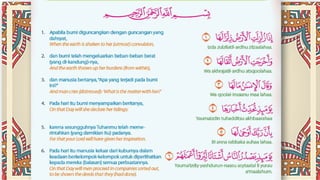 بسم الله الرحمن الرحيم
1. Apabila bumi diguncangkan dengan guncangan yang
dahsyat,
When the earth is shaken to her (utmost) convulsion,
2. dan bumi telah mengeluarkan beban-beban berat
(yang di-kandung)-nya,
And the earth throws up her burdens (from within),
3. dan manusia bertanya, "Apa yang terjadi pada bumi
ini?"
And man cries (distressed): 'What is the matter with her?'
4. Pada hari itu bumi menyampaikan beritanya,
On that Day will she declare her tidings:
5. karena sesungguhnya Tuhanmu telah meme-
rintahkan (yang demikian itu) padanya.
For that your Lord will have given her inspiration.
6. Pada hari itu manusia keluar dari kuburnya dalam
keadaan berkelompok-kelompok untuk diperlihatkan
kepada mereka (balasan) semua perbuatannya.
On that Day will men proceed in companies sorted out,
to be shown the deeds that they (had done).
إِذَا زُلْزِلَتِ الْأَرْضُ زِلْزَالَهَا
Izda zulzilatil-ardhu zilzaalahaa.
وَأَخْرَجَتِ الْأَرْضُ أَثْقَالَهَا
Wa akhrajatil-ardhu atsqaalahaa.
وَقَالَ الْإِنْسَانُ مَا لَهَا
Wa qoolal-insaanu maa lahaa.
يَوْمَئِذٍ تُحَدِّثُ أَخْبَارَهَا
Yaumaidzin tuhadditsu akhbaarahaa
بِأَنَّ رَبَّكَ أَوْحَىٰ لَهَا
Bi anna rabbaka auhaa lahaa.
يَوْمَئِذٍ يَصْدُرُ النَّاسُ أَشْتَاتًا لِيُرَوْا أَعْمَالَهُمْ